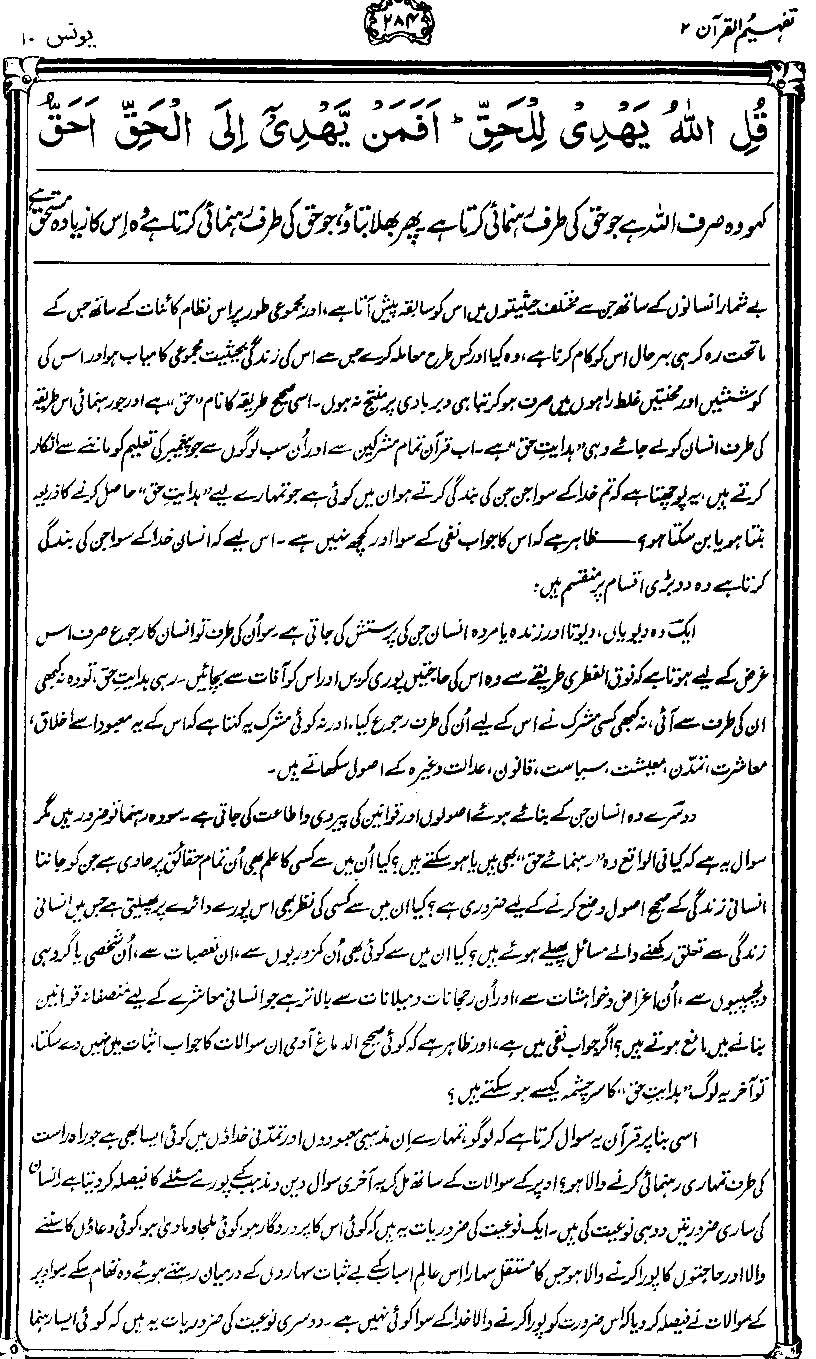 تفہیم القرآن ۲
۲۸۴
یونس ۱۰
قُلِ اللّٰهُ یَهْدِیْ لِلْحَقِّ ؕ اَفَمَنْ یَّهْدِیْۤ اِلَی الْحَقِّ اَحَقُّ
کہو وہ صرف اللہ ہے جو حق کی طرف رہنمائی کرتا ہے۔ پھر بھلا بتاؤ، جو حق کی طرف رہنمائی کرتا ہے وہ اِس کا زیادہ مستحق ہے
بے شمار انسانوں کے ساتھ جن سے مختلف حیثیتوں میں اس کو سابقہ پیش آتا ہے، اور مجموعی طور پر اس نظام کائنات کے ساتھ جس کے
ماتحت رہ کر ہی بہرحال اس کو کام کرنا ہے، وہ کیا اور کس طرح معاملہ کرے جس سے اس کی زندگی بحیثیت مجموعی کامیاب ہو اور اس کی
کوششیں اور محنتیں غلط راہوں میں صرف ہو کر تباہی و بربادی پر منتج نہ ہوں۔ اسی صحیح طریقہ کا نام ”حق“ ہے اور جو رہنمائی اس طریقہ
کی طرف انسان کو لے جائے وہی ”ہدایتِ حق“ ہے۔ اب قرآن تمام مشرکین سے اور اُن سب لوگوں سے جو پیغمبر کی تعلیم کو ماننے سے انکار
کرتے ہیں، یہ پوچھتا ہے کہ تم خدا کے سوا جن جن کی بندگی کرتے ہو ان میں کوئی ہے جو تمہارے لیے ”ہدایتِ حق“ حاصل کرنے کا ذریعہ
بنتا ہو یا بن سکتا ہو؟ —— ظاہر ہے کہ اس کا جواب نفی کے سوا اور کچھ نہیں ہے۔ اس لیے کہ انسان خدا کے سوا جن کی بندگی
کرتا ہے وہ دو بڑی اقسام پر منقسم ہیں:
ایک وہ دیویاں، دیوتا اور زندہ یا مردہ انسان جن کی پرستش کی جاتی ہے۔ سو اُن کی طرف تو انسان کا رجوع صرف اس
غرض کے لیے ہوتا ہے کہ فوق الفطری طریقے سے وہ اس کی حاجتیں پوری کریں اور اس کو آفات سے بچائیں۔ رہی ہدایتِ حق، تو وہ نہ کبھی
ان کی طرف سے آئی، نہ کبھی کسی مشرک نے اس کے لیے اُن کی طرف رجوع کیا، اور نہ کوئی مشرک یہ کہتا ہے کہ اس کے یہ معبود اسے اخلاق،
معاشرت، تمدّن، معیشت، سیاست، قانون، عدالت وغیرہ کے اصول سکھاتے ہیں۔
دوسرے وہ انسان جن کے بنائے ہوئے اصولوں اور قوانین کی پیروی و اطاعت کی جاتی ہے۔ سو وہ رہنما تو ضرور ہیں مگر
سوال یہ ہے کہ کیا فی الواقع وہ ”رہنمائے حق“ بھی ہیں یا ہو سکتے ہیں؟ کیا اُن میں سے کسی کا علم بھی اُن تمام حقائق پر حاوی ہے جن کو جاننا
انسانی زندگی کے صحیح اصول وضع کرنے کے لیے ضروری ہے؟ کیا ان میں سے کسی کی نظر بھی اس پورے دائرے پر پھیلتی ہے جس میں انسانی
زندگی سے تعلق رکھنے والے مسائل پھیلے ہوئے ہیں؟ کیا ان میں سے کوئی بھی اُن کمزوریوں سے، ان تعصبات سے، اُن شخصی یا گروہی
دلچسپیوں سے، اُن اغراض و خواہشات سے، اور اُن رجحانات و میلانات سے بالاتر ہے جو انسانی معاشرے کے لیے منصفانہ قوانین
بنانے میں مانع ہوتے ہیں؟ اگر جواب نفی میں ہے، اور ظاہر ہے کہ کوئی صحیح الدماغ آدمی ان سوالات کا جواب اثبات میں نہیں دے سکتا،
تو آخر یہ لوگ ”ہدایتِ حق“ کا سرچشمہ کیسے ہو سکتے ہیں؟
اسی بنا پر قرآن یہ سوال کرتا ہے کہ لوگو، تمہارے اِن مذہبی معبودوں اور تمدّنی خداؤں میں کوئی ایسا بھی ہے جو راہ راست
کی طرف تمہاری رہنمائی کرنے والا ہو؟ اوپر کے سوالات کے ساتھ مل کر یہ آخری سوال دین و مذہب کے پورے مسئلے کا فیصلہ کر دیتا ہے۔ انسان
کی ساری ضرورتیں دو ہی نوعیت کی ہیں۔ ایک نوعیت کی ضروریات یہ ہیں کہ کوئی اس کا پروردگار ہو، کوئی ملجا و ماویٰ ہو، کوئی دعاؤں کا سننے
والا اور حاجتوں کا پورا کرنے والا ہو جس کا مستقل سہارا اس عالمِ اسباب کے بے ثبات سہاروں کے درمیان رہتے ہوئے وہ تھام سکے۔ سو اوپر
کے سوالات نے فیصلہ کر دیا کہ اس ضرورت کو پورا کرنے والا خدا کے سوا کوئی نہیں ہے۔ دوسری نوعیت کی ضروریات یہ ہیں کہ کوئی ایسا رہنما